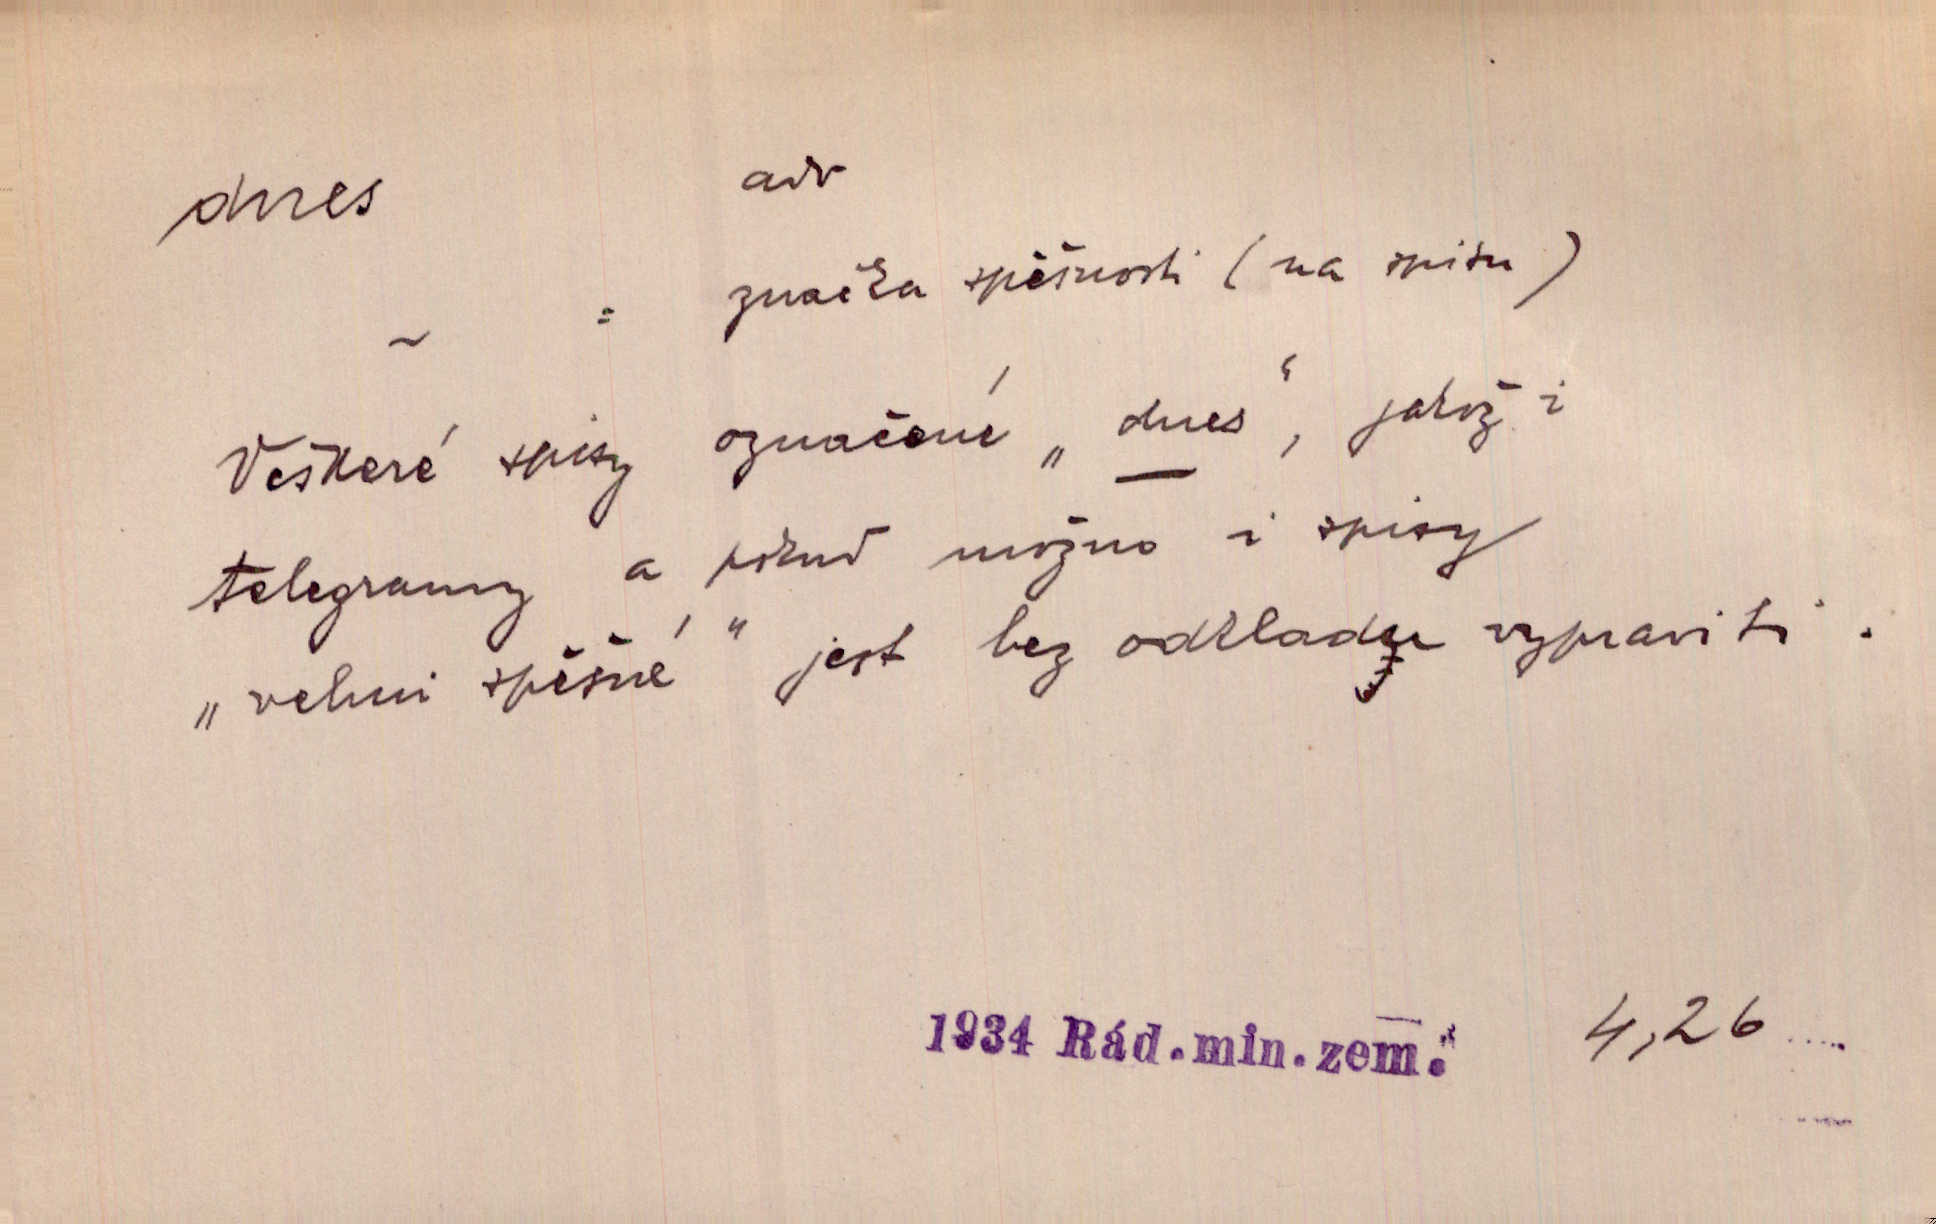 dnes adv
~ = značka spěšnosti (na spisu)
Veškeré spisy označené „dnes“, jakož i
telegramy a pokud možno i spisy
„velmi spěšné“ jest bez odkladu vypraviti.
1934 Rád.min.zem. 4,26